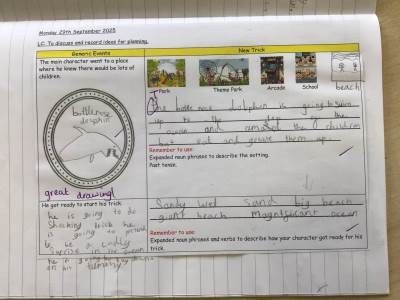 Monday 29th September 2025
LC: To discuss and record ideas for planning.
Generic Events
New Trick
The main character went to a place
where he knew there would be lots of
children.
Park
Theme Park
Arcade
School
beach
bottlenose
dolphin
great drawing!
dolphin is going to swim
up to the of the
ocean and the children
but and them up.
Remember to use:
Expanded noun phrases to describe the setting.
Past tense.
He got ready to start his trick.
he is going to do
Shocking trick he
is going to
be a
in the ocean
he is going to lay down
on his
Sandy wet sand big beach
giant beach magnificant ocean
Remember to use:
Expanded noun phrases and verbs to describe how your character got ready for his
trick.